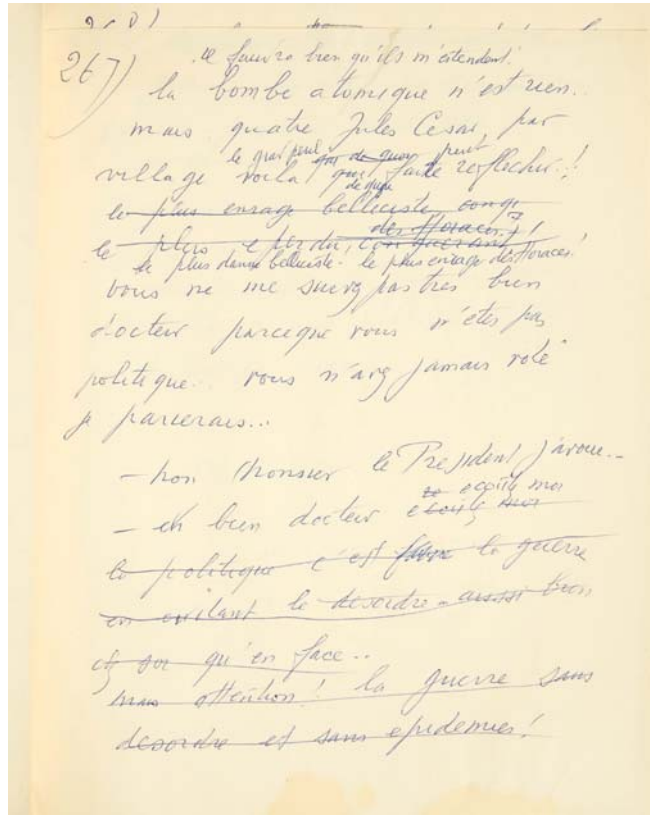 267)
il faudra bien qu'ils m'entendent!
la bombe atomique n'est rien..
mais quatre Jules Cesar, par
le quel peut peut
village voila qui faire reflechir!
de quoi
le plus enragé belliciste, conqu
des Horaces!
le plus eperdu conquerant!
le plus damné belliciste! le plus enragé des Horaces!
vous ne me suivez pas tres bien
docteur parceque vous n'êtes pas
politique.. vous n'avez jamais voté
je parierais...
- non Monsieur le President j'avoue..
ecoutez moi
- eh bien docteur ecoutez moi
la politique c'est faire la guerre
en evitant le desordre - aussi bien
chez soi qu'en face..
mais attention! la guerre sans
desordre et sans epidemies!